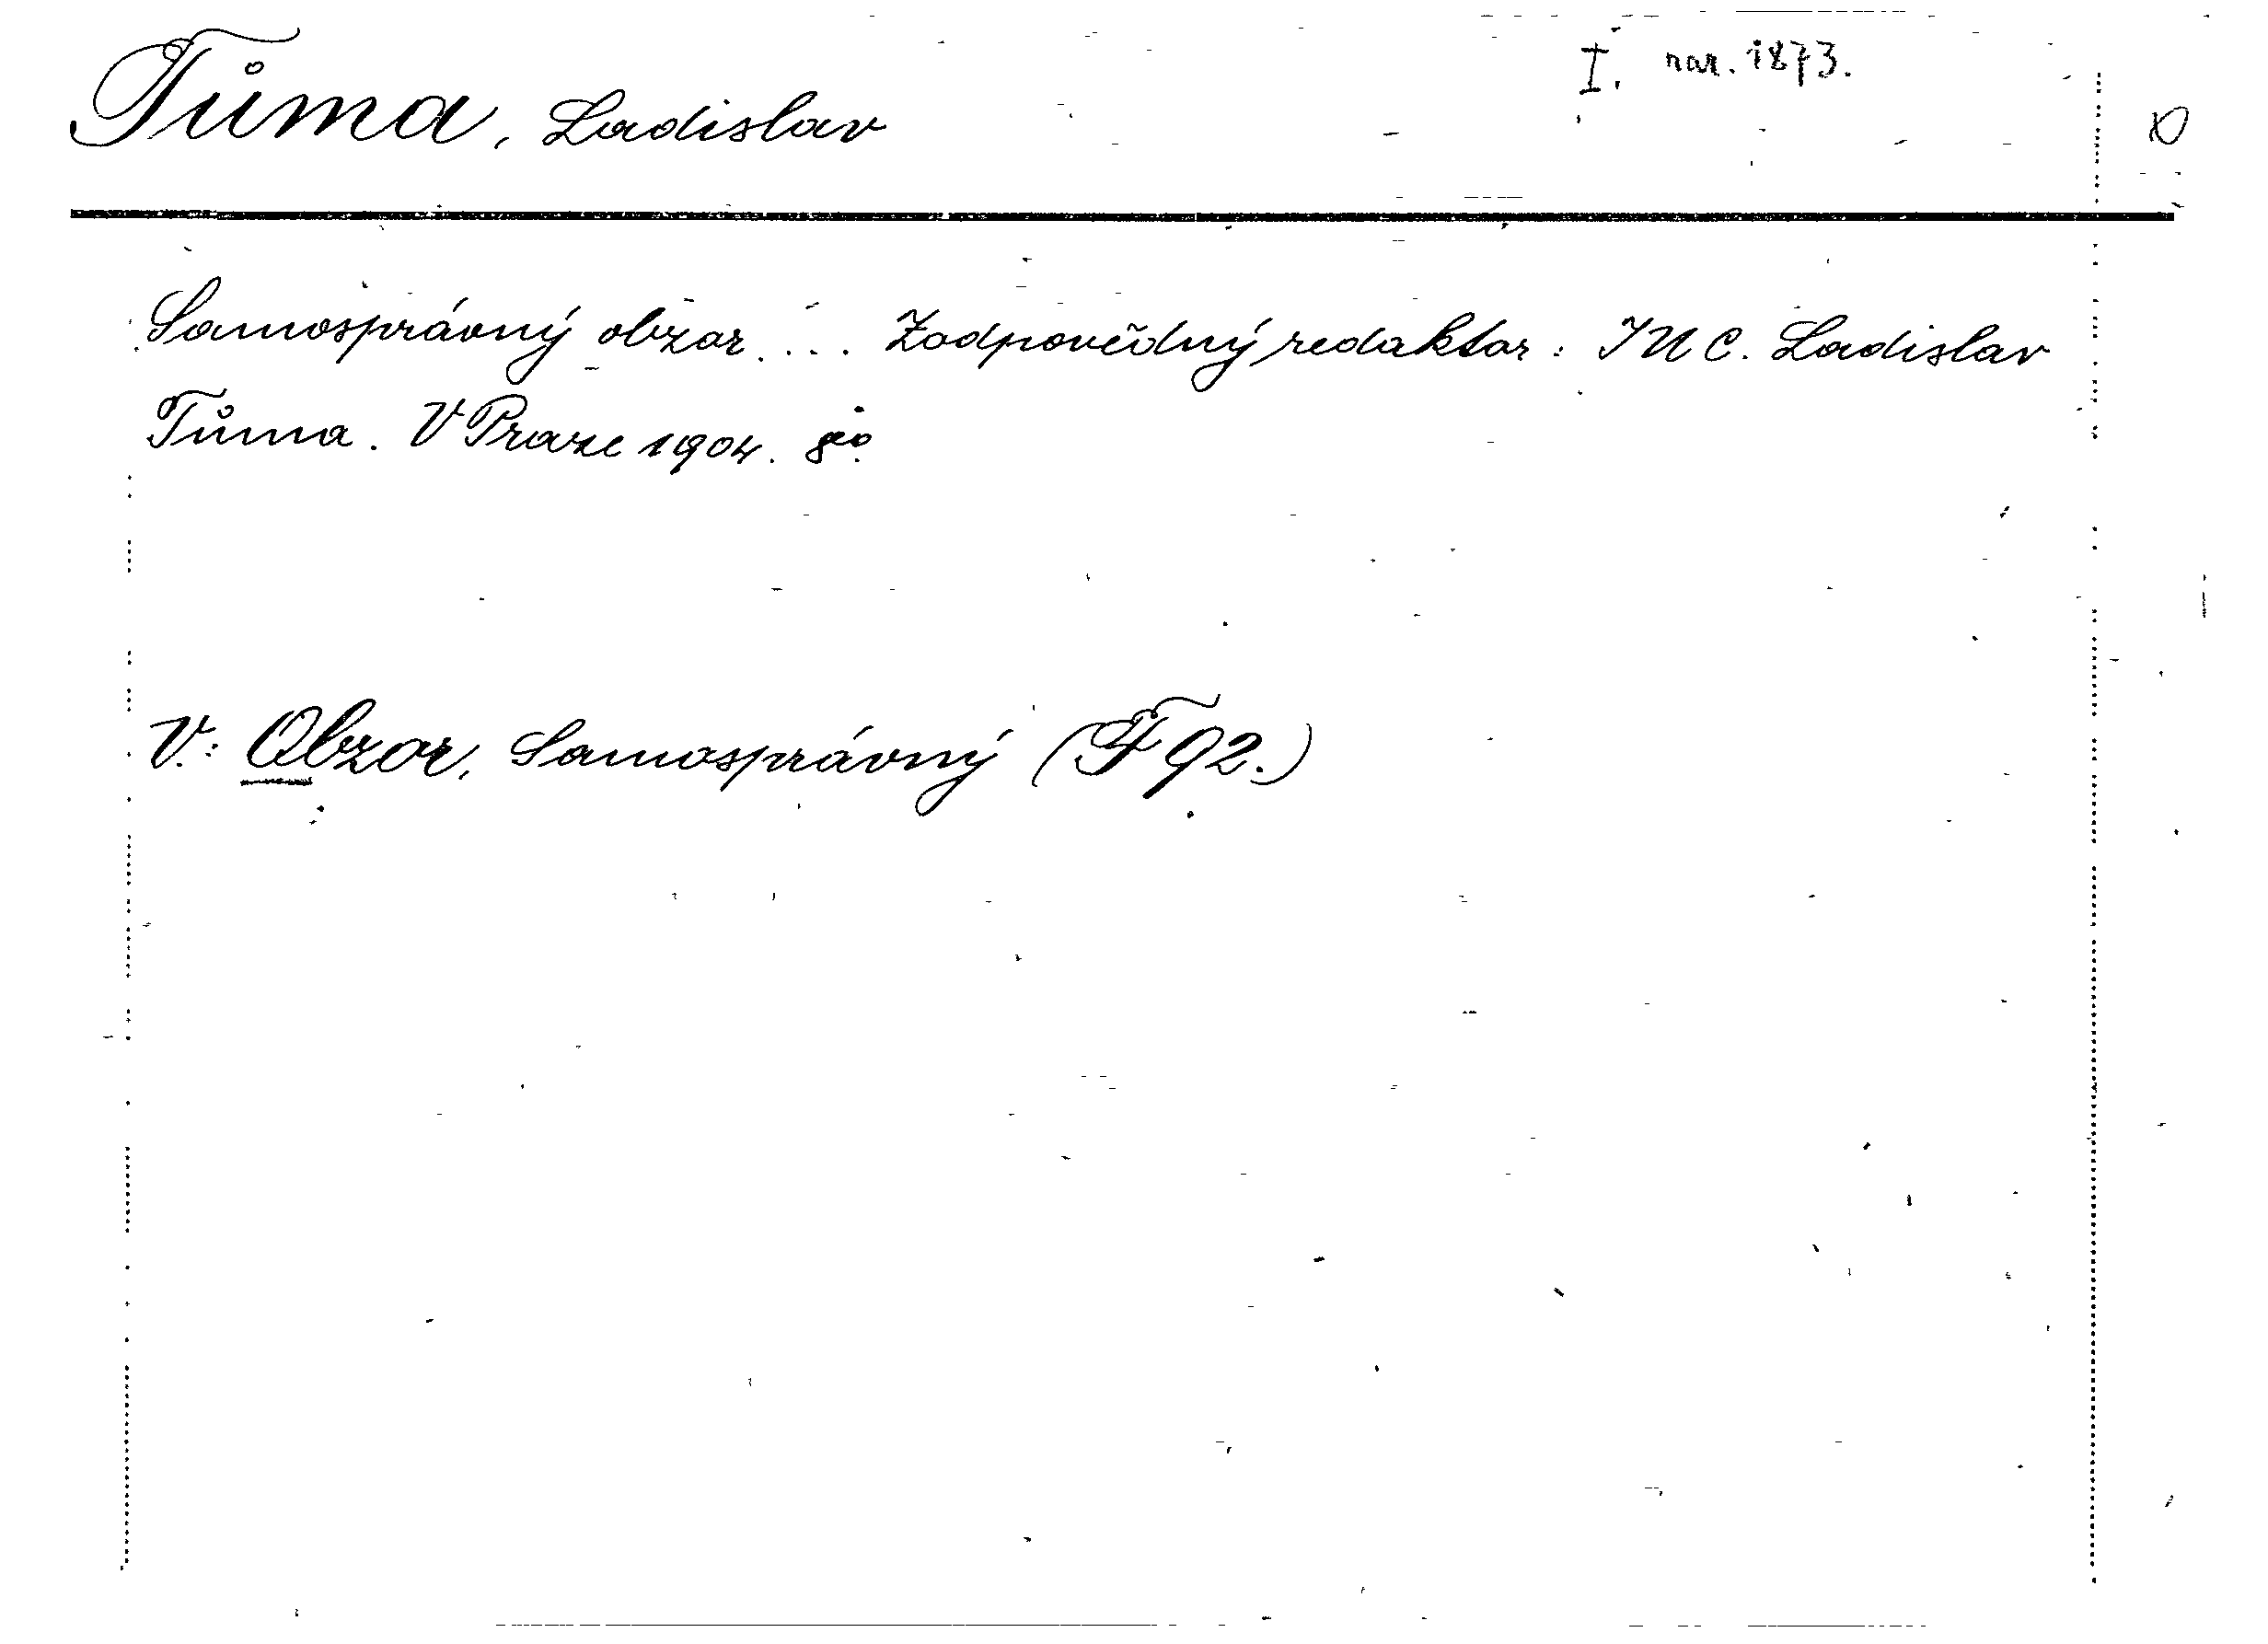 Tůma, Ladislav
I. nar. 1873.
Samosprávný obzor. ... Zodpovědný redaktor: JUC. Ladislav
Tůma. V Praze 1904. 8º.
V.: Obzor, Samosprávný (F 92.)